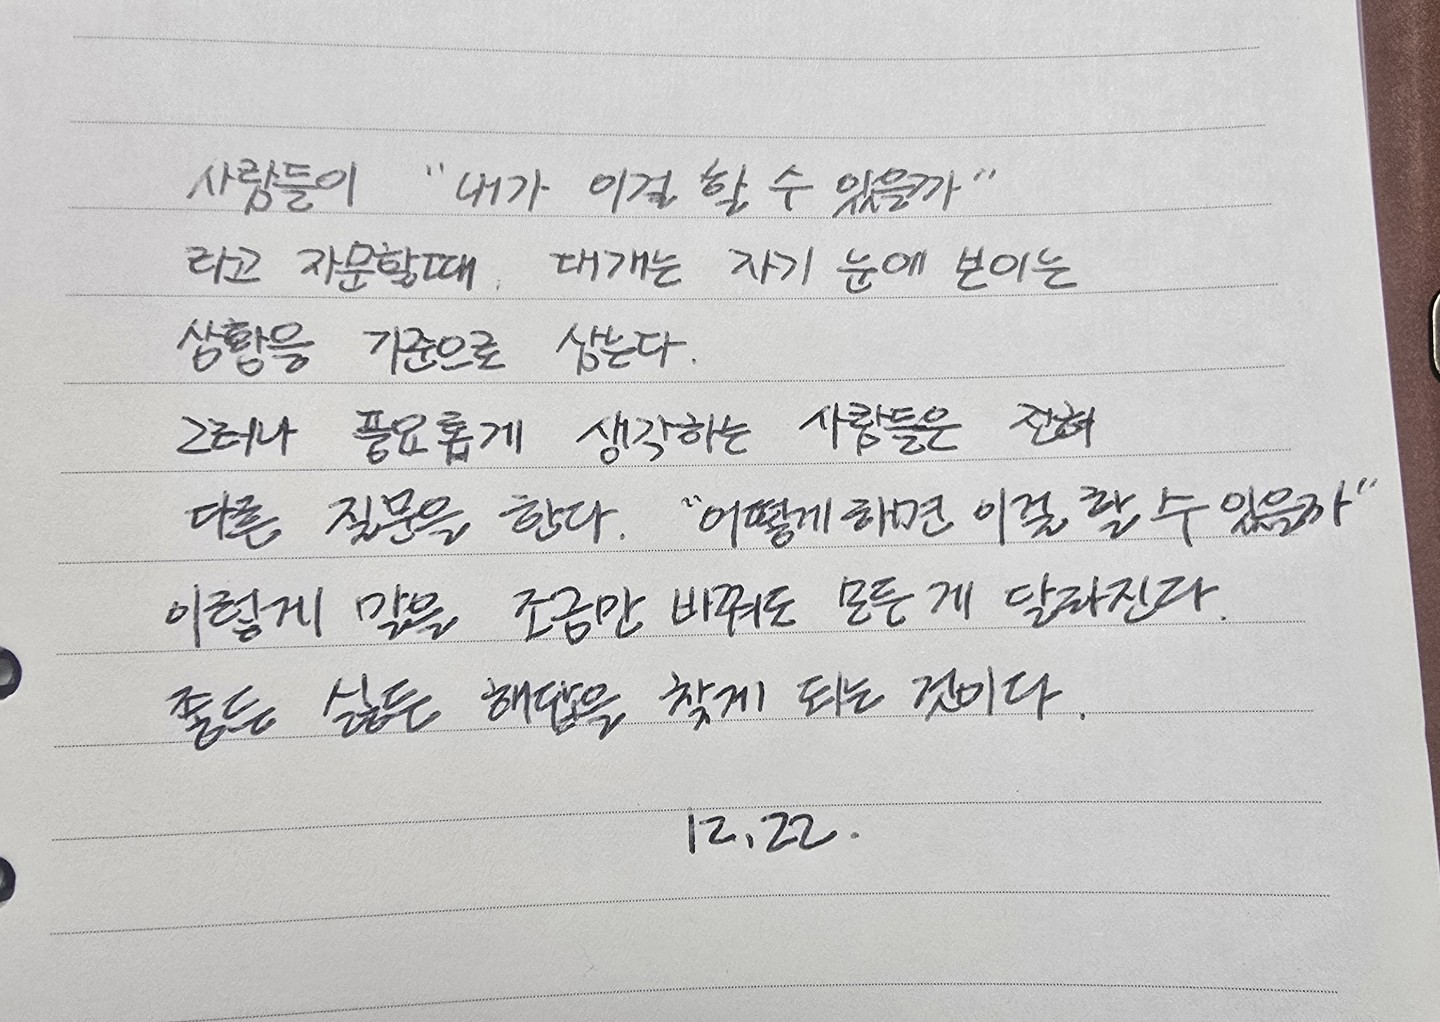 사람들이 "내가 이걸 할 수 있을까"
라고 자문할때. 대개는 자기 눈에 보이는
상황을 기준으로 삼는다.
그러나 풍요롭게 생각하는 사람들은 전혀
다른 질문을 한다. "어떻게하면 이걸 할 수 있을까"
이렇게 말을 조금만 바꿔도 모든 게 달라진다.
좋든 싫든 해답을 찾게 되는 것이다.
12.22.